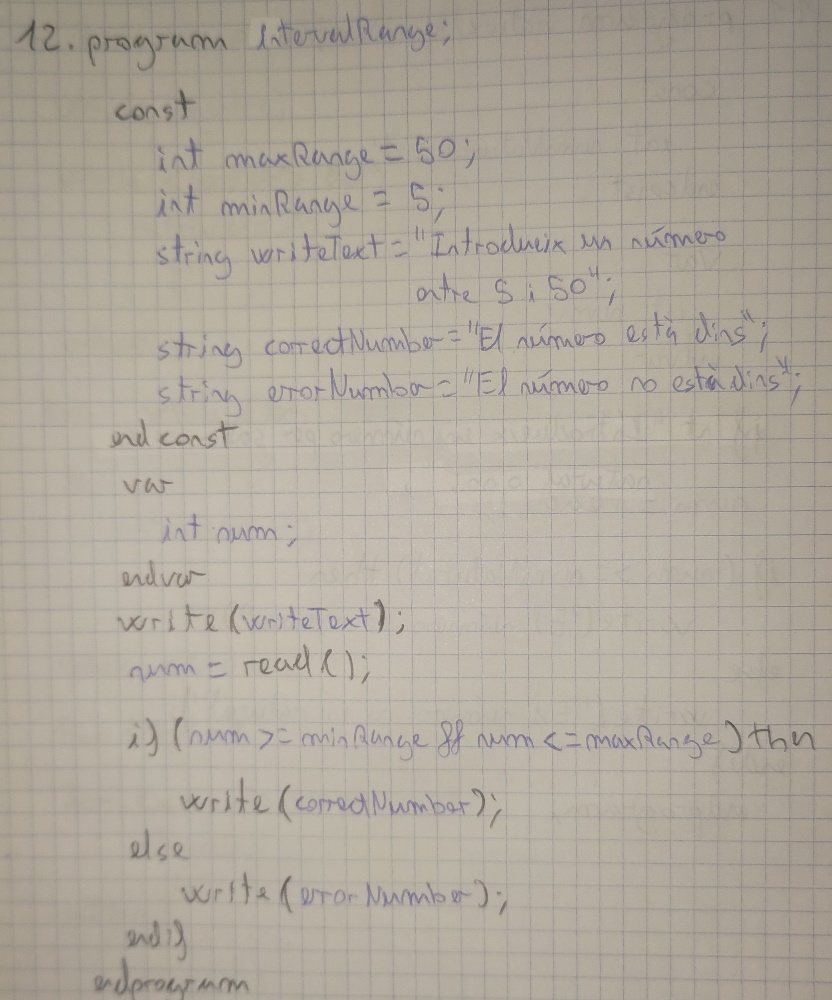 12. program IntervalRange;
const
int maxRange = 50;
int minRange = 5;
string writeText = "Introdueix un número
entre 5 i 50";
string correctNumber = "El número està dins";
string errorNumber = "El número no està dins";
endconst
var
int num;
endvar
write(writeText);
num = read();
if (num >= minRange && num <= maxRange) then
write(correctNumber);
else
write(errorNumber);
endif
endprogram